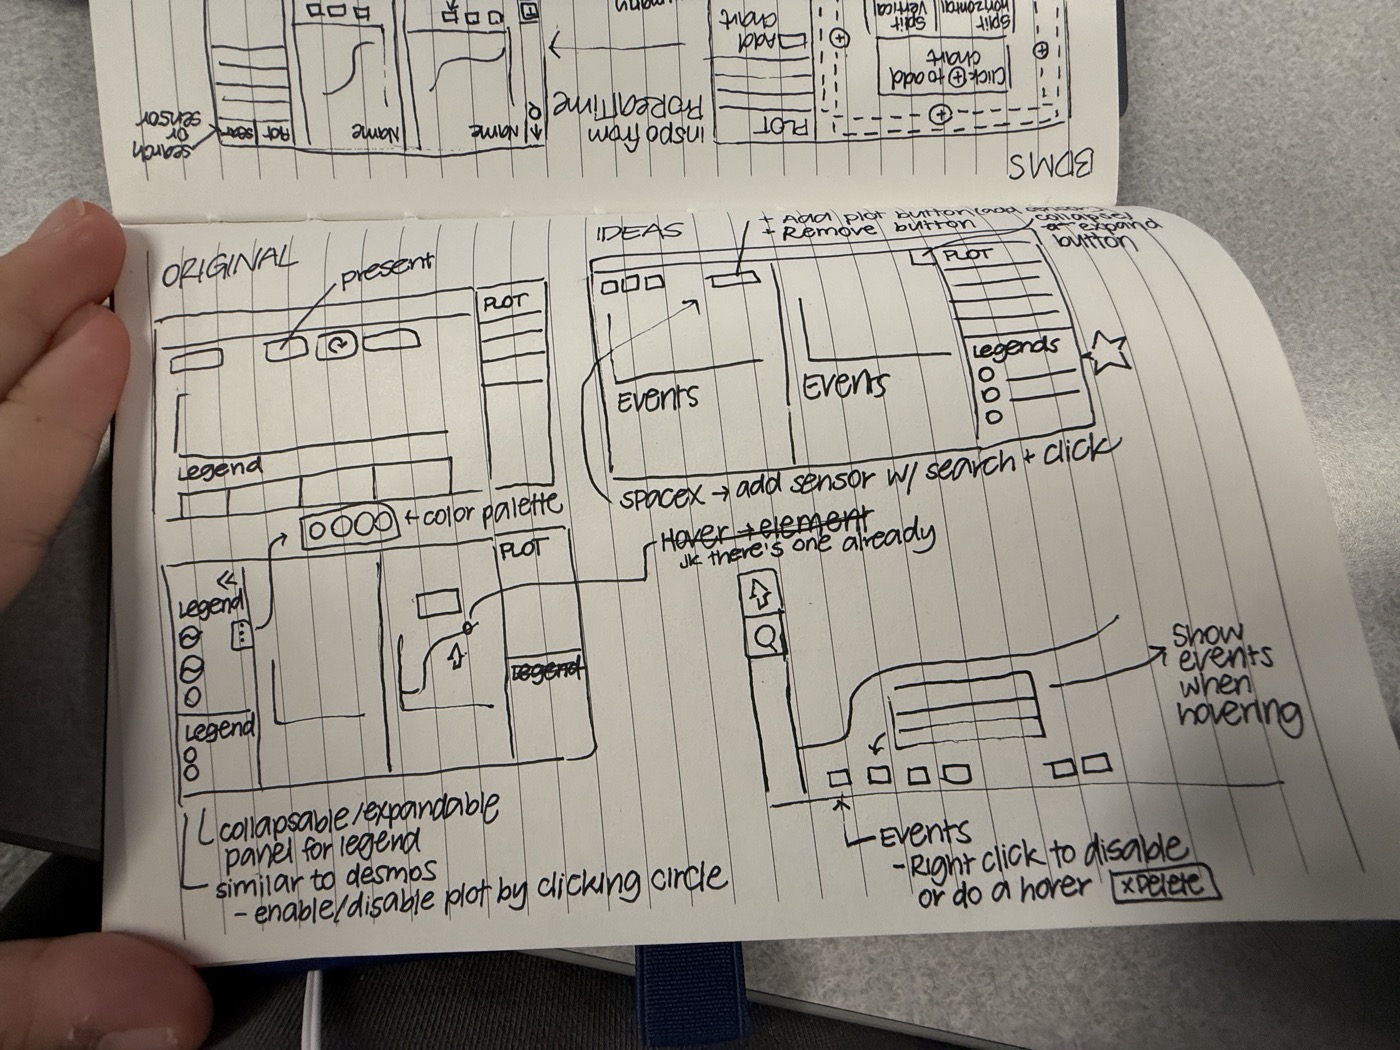 BDMS
PLOT
Add
chart
Click ⊕ to add
chart
Split
horizontal
Split
vertical
inspo from
ProRealTime
Name
Name
PLOT
search
or
sensor
ORIGINAL
present
PLOT
Legend
← color palette
IDEAS
+ Add plot button (add
+ Remove button
collapse/
expand
button
PLOT
Legends
Events
Events
spacex → add sensor w/ search + click
Hover → element
JK there's one already
<<
Legend
Legend
PLOT
Legend
collapsable/expandable
panel for legend
similar to desmos
- enable/disable plot by clicking circle
show
events
when
hovering
Events
- Right click to disable
or do a hover x Delete